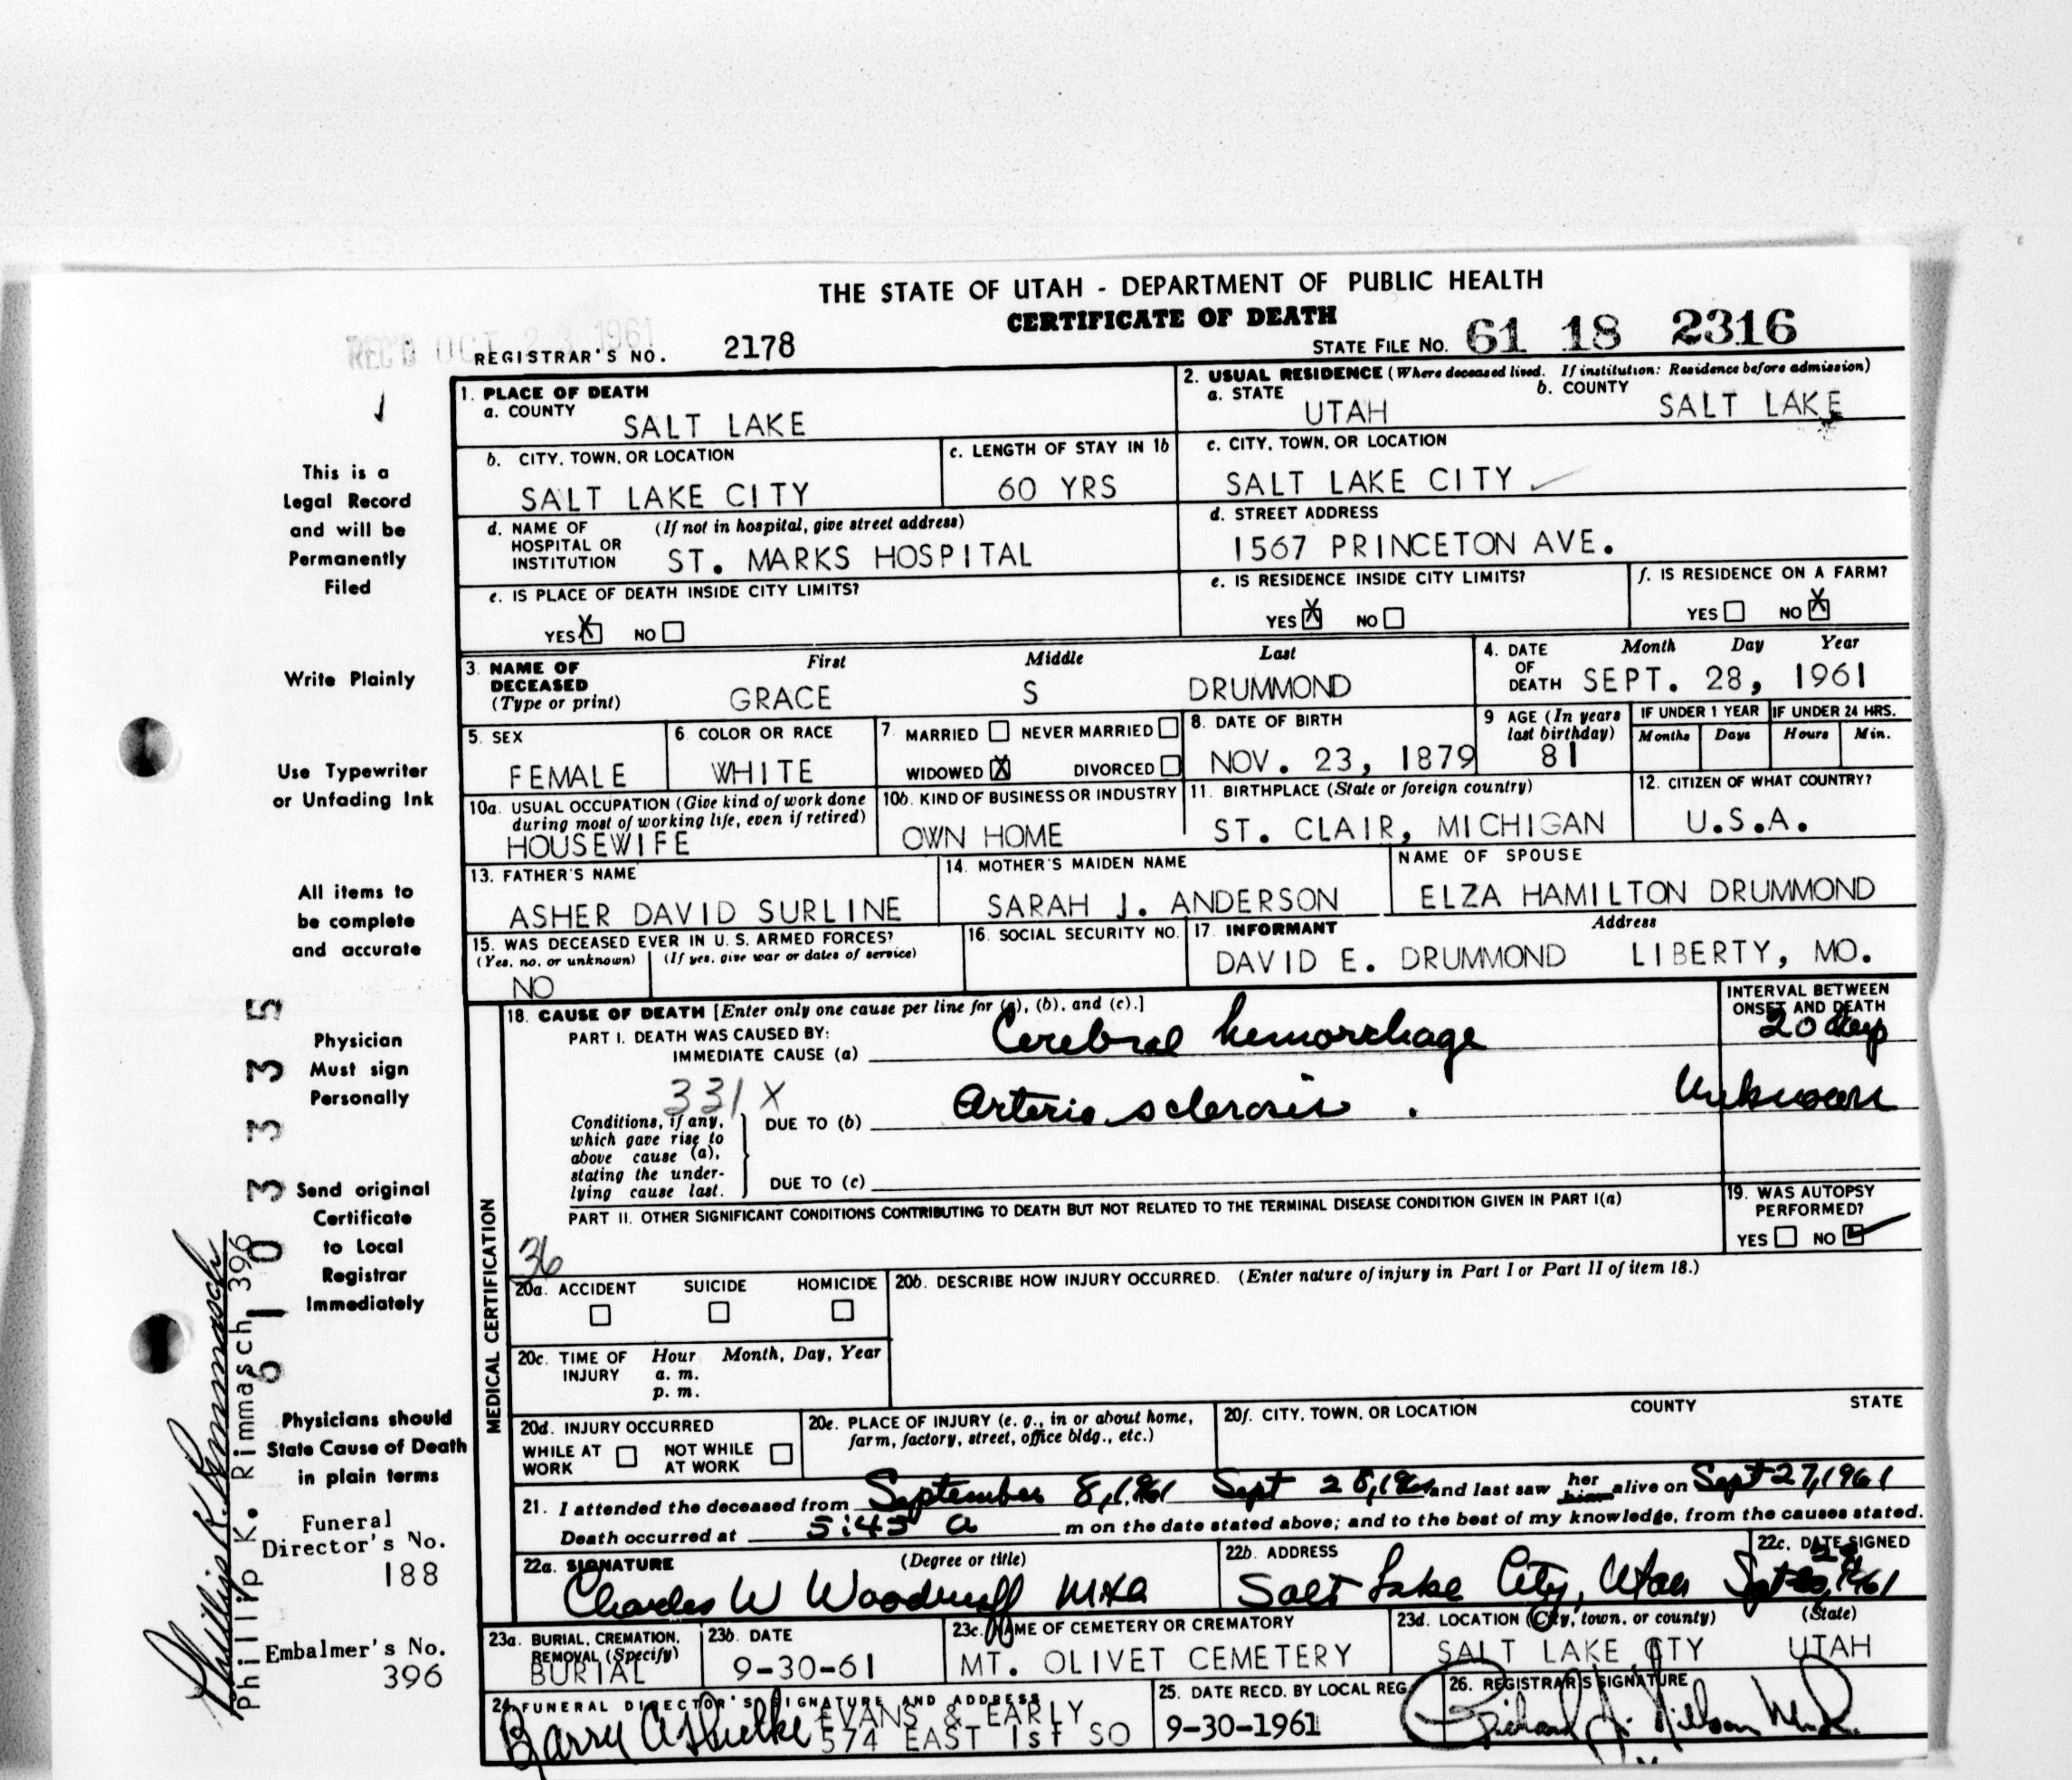 THE STATE OF UTAH - DEPARTMENT OF PUBLIC HEALTH
CERTIFICATE OF DEATH
REC'D OCT 23 1961
REGISTRAR'S NO. 2178
STATE FILE NO. 61 18 2316
1. PLACE OF DEATH
a. COUNTY
SALT LAKE
2. USUAL RESIDENCE (Where deceased lived. If institution: Residence before admission)
a. STATE UTAH b. COUNTY SALT LAKE
b. CITY, TOWN, OR LOCATION
SALT LAKE CITY
c. LENGTH OF STAY IN 1b
60 YRS
c. CITY, TOWN, OR LOCATION
SALT LAKE CITY
d. NAME OF HOSPITAL OR INSTITUTION (If not in hospital, give street address)
ST. MARKS HOSPITAL
d. STREET ADDRESS
1567 PRINCETON AVE.
e. IS PLACE OF DEATH INSIDE CITY LIMITS?
YES X NO
e. IS RESIDENCE INSIDE CITY LIMITS?
YES X NO
f. IS RESIDENCE ON A FARM?
YES NO X
3. NAME OF DECEASED (Type or print)
First Middle Last
GRACE S DRUMMOND
4. DATE OF DEATH
Month Day Year
SEPT. 28, 1961
5. SEX
FEMALE
6. COLOR OR RACE
WHITE
7. MARRIED NEVER MARRIED
WIDOWED X DIVORCED
8. DATE OF BIRTH
NOV. 23, 1879
9 AGE (In years last birthday)
81
IF UNDER 1 YEAR
Months Days
IF UNDER 24 HRS.
Hours Min.
10a. USUAL OCCUPATION (Give kind of work done during most of working life, even if retired)
HOUSEWIFE
10b. KIND OF BUSINESS OR INDUSTRY
OWN HOME
11. BIRTHPLACE (State or foreign country)
ST. CLAIR, MICHIGAN
12. CITIZEN OF WHAT COUNTRY?
U.S.A.
13. FATHER'S NAME
ASHER DAVID SURLINE
14. MOTHER'S MAIDEN NAME
SARAH J. ANDERSON
NAME OF SPOUSE
ELZA HAMILTON DRUMMOND
15. WAS DECEASED EVER IN U. S. ARMED FORCES?
(Yes, no, or unknown) (If yes, give war or dates of service)
NO
16. SOCIAL SECURITY NO.
17. INFORMANT Address
DAVID E. DRUMMOND LIBERTY, MO.
MEDICAL CERTIFICATION
18. CAUSE OF DEATH [Enter only one cause per line for (a), (b), and (c).]
INTERVAL BETWEEN ONSET AND DEATH
PART I. DEATH WAS CAUSED BY:
IMMEDIATE CAUSE (a) Cerebral hemorrhage 20 days
331 X
Conditions, if any, which gave rise to above cause (a), stating the underlying cause last.
DUE TO (b) Arterio sclerosis. Unknown
DUE TO (c)
PART II. OTHER SIGNIFICANT CONDITIONS CONTRIBUTING TO DEATH BUT NOT RELATED TO THE TERMINAL DISEASE CONDITION GIVEN IN PART I(a)
36
19. WAS AUTOPSY PERFORMED?
YES NO
20a. ACCIDENT SUICIDE HOMICIDE
20b. DESCRIBE HOW INJURY OCCURRED. (Enter nature of injury in Part I or Part II of item 18.)
20c. TIME OF INJURY
Hour Month, Day, Year
a. m.
p. m.
20d. INJURY OCCURRED
WHILE AT WORK NOT WHILE AT WORK
20e. PLACE OF INJURY (e. g., in or about home, farm, factory, street, office bldg., etc.)
20f. CITY, TOWN, OR LOCATION COUNTY STATE
21. I attended the deceased from September 8, 1961 Sept 28, 1961 and last saw her him alive on Sept 27, 1961
Death occurred at 5:45 a m on the date stated above; and to the best of my knowledge, from the causes stated.
22a. SIGNATURE (Degree or title)
Charles W Woodruff
22b. ADDRESS
Salt Lake City, Utah
22c. DATE SIGNED
Sept 1961
23a. BURIAL, CREMATION, REMOVAL (Specify)
BURIAL
23b. DATE
9-30-61
23c. NAME OF CEMETERY OR CREMATORY
MT. OLIVET CEMETERY
23d. LOCATION (City, town, or county) (State)
SALT LAKE CITY UTAH
24 FUNERAL DIRECTOR'S SIGNATURE AND ADDRESS
EVANS & EARLY
574 EAST 1st SO
25. DATE RECD. BY LOCAL REG.
9-30-1961
26. REGISTRAR'S SIGNATURE
This is a
Legal Record
and will be
Permanently
Filed
Write Plainly
Use Typewriter
or Unfading Ink
All items to
be complete
and accurate
Physician
Must sign
Personally
Send original
Certificate
to Local
Registrar
Immediately
Physicians should
State Cause of Death
in plain terms
Funeral
Director's No.
188
Embalmer's No.
396
6 1 0 3 3 3 5
Phillip K. Rimmasch
Phillip K. Rimmasch 396